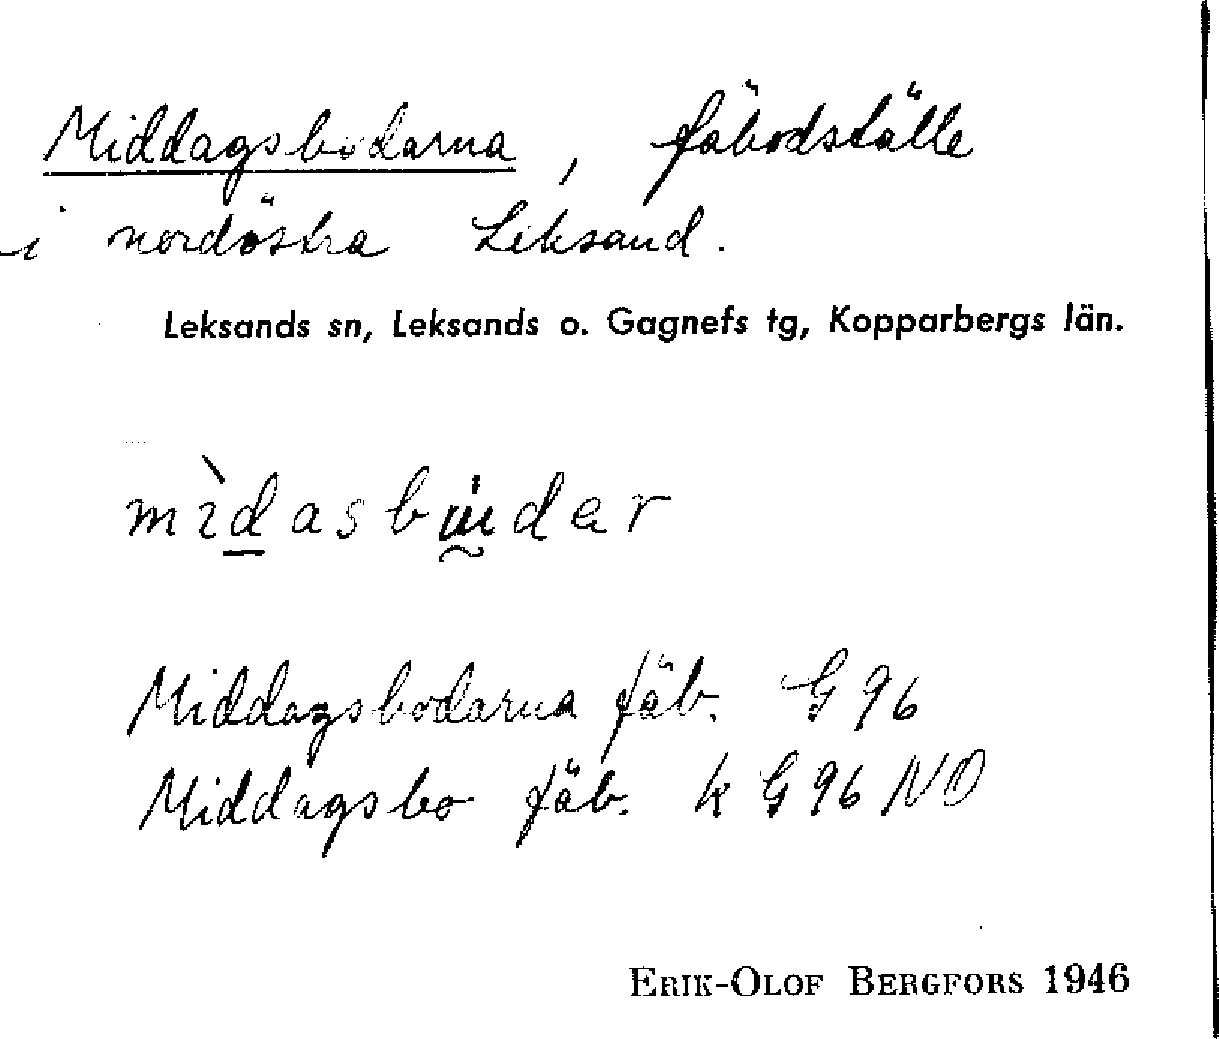 Middagsbodarna, fäbodställe
i nordöstra Leksand.
Leksands sn, Leksands o. Gagnefs tg, Kopparbergs län.
Middagsbodarna fäb. G 96
Middagsbo fäb. k G 96 NO
ERIK-OLOF BERGFORS 1946